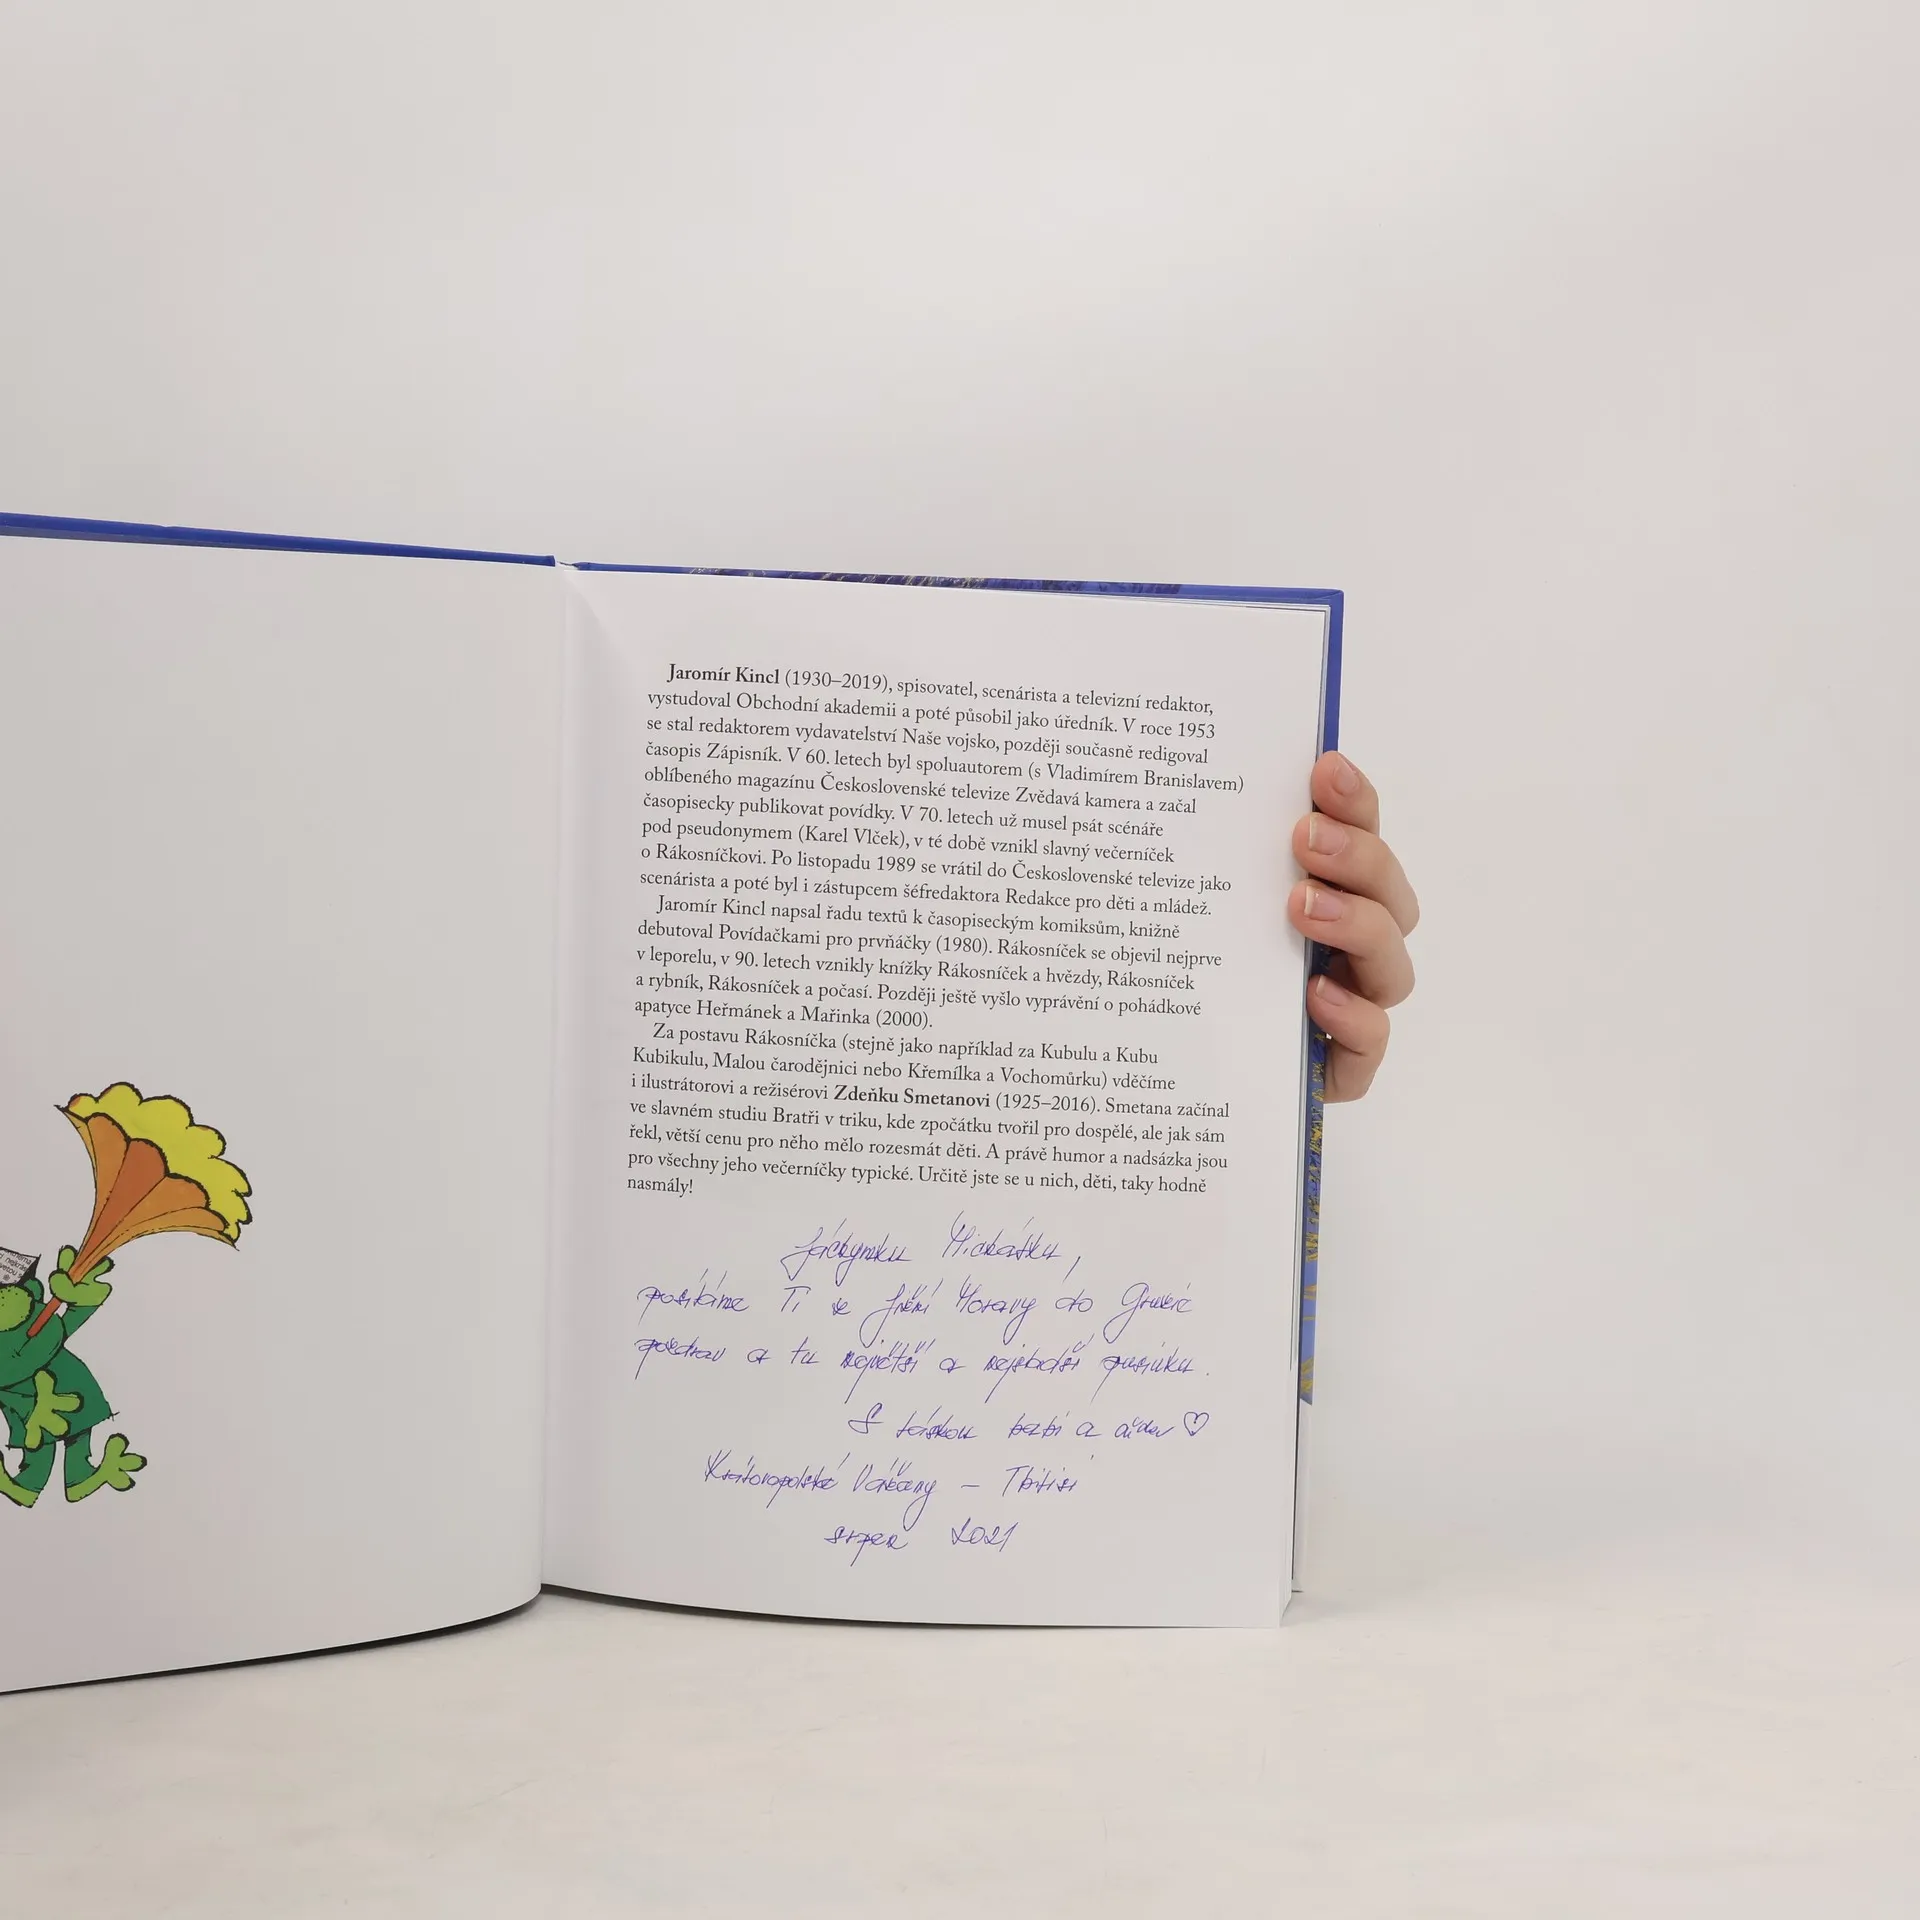 Jaromír Kincl (1930–2019), spisovatel, scenárista a televizní redaktor,
vystudoval Obchodní akademii a poté působil jako úředník. V roce 1953
se stal redaktorem vydavatelství Naše vojsko, později současně redigoval
časopis Zápisník. V 60. letech byl spoluautorem (s Vladimírem Branislavem)
oblíbeného magazínu Československé televize Zvědavá kamera a začal
časopisecky publikovat povídky. V 70. letech už musel psát scénáře
pod pseudonymem (Karel Vlček), v té době vznikl slavný večerníček
o Rákosníčkovi. Po listopadu 1989 se vrátil do Československé televize jako
scenárista a poté byl i zástupcem šéfredaktora Redakce pro děti a mládež.
Jaromír Kincl napsal řadu textů k časopiseckým komiksům, knižně
debutoval Povídačkami pro prvňáčky (1980). Rákosníček se objevil nejprve
v leporelu, v 90. letech vznikly knížky Rákosníček a hvězdy, Rákosníček
a rybník, Rákosníček a počasí. Později ještě vyšlo vyprávění o pohádkové
apatyce Heřmánek a Mařinka (2000).
Za postavu Rákosníčka (stejně jako například za Kubulu a Kubu
Kubikulu, Malou čarodějnici nebo Křemílka a Vochomůrku) vděčíme
i ilustrátorovi a režisérovi Zdeňku Smetanovi (1925–2016). Smetana začínal
ve slavném studiu Bratři v triku, kde zpočátku tvořil pro dospělé, ale jak sám
řekl, větší cenu pro něho mělo rozesmát děti. A právě humor a nadsázka jsou
pro všechny jeho večerníčky typické. Určitě jste se u nich, děti, taky hodně
nasmály!
Jáchymku
posíláme Ti z Jižní Moravy do Gruzie
pozdrav a tu největší a nejsladší pusinku.
S láskou babi a děda ♡
Královopolské Vážany – Tbilisi
srpen 2021